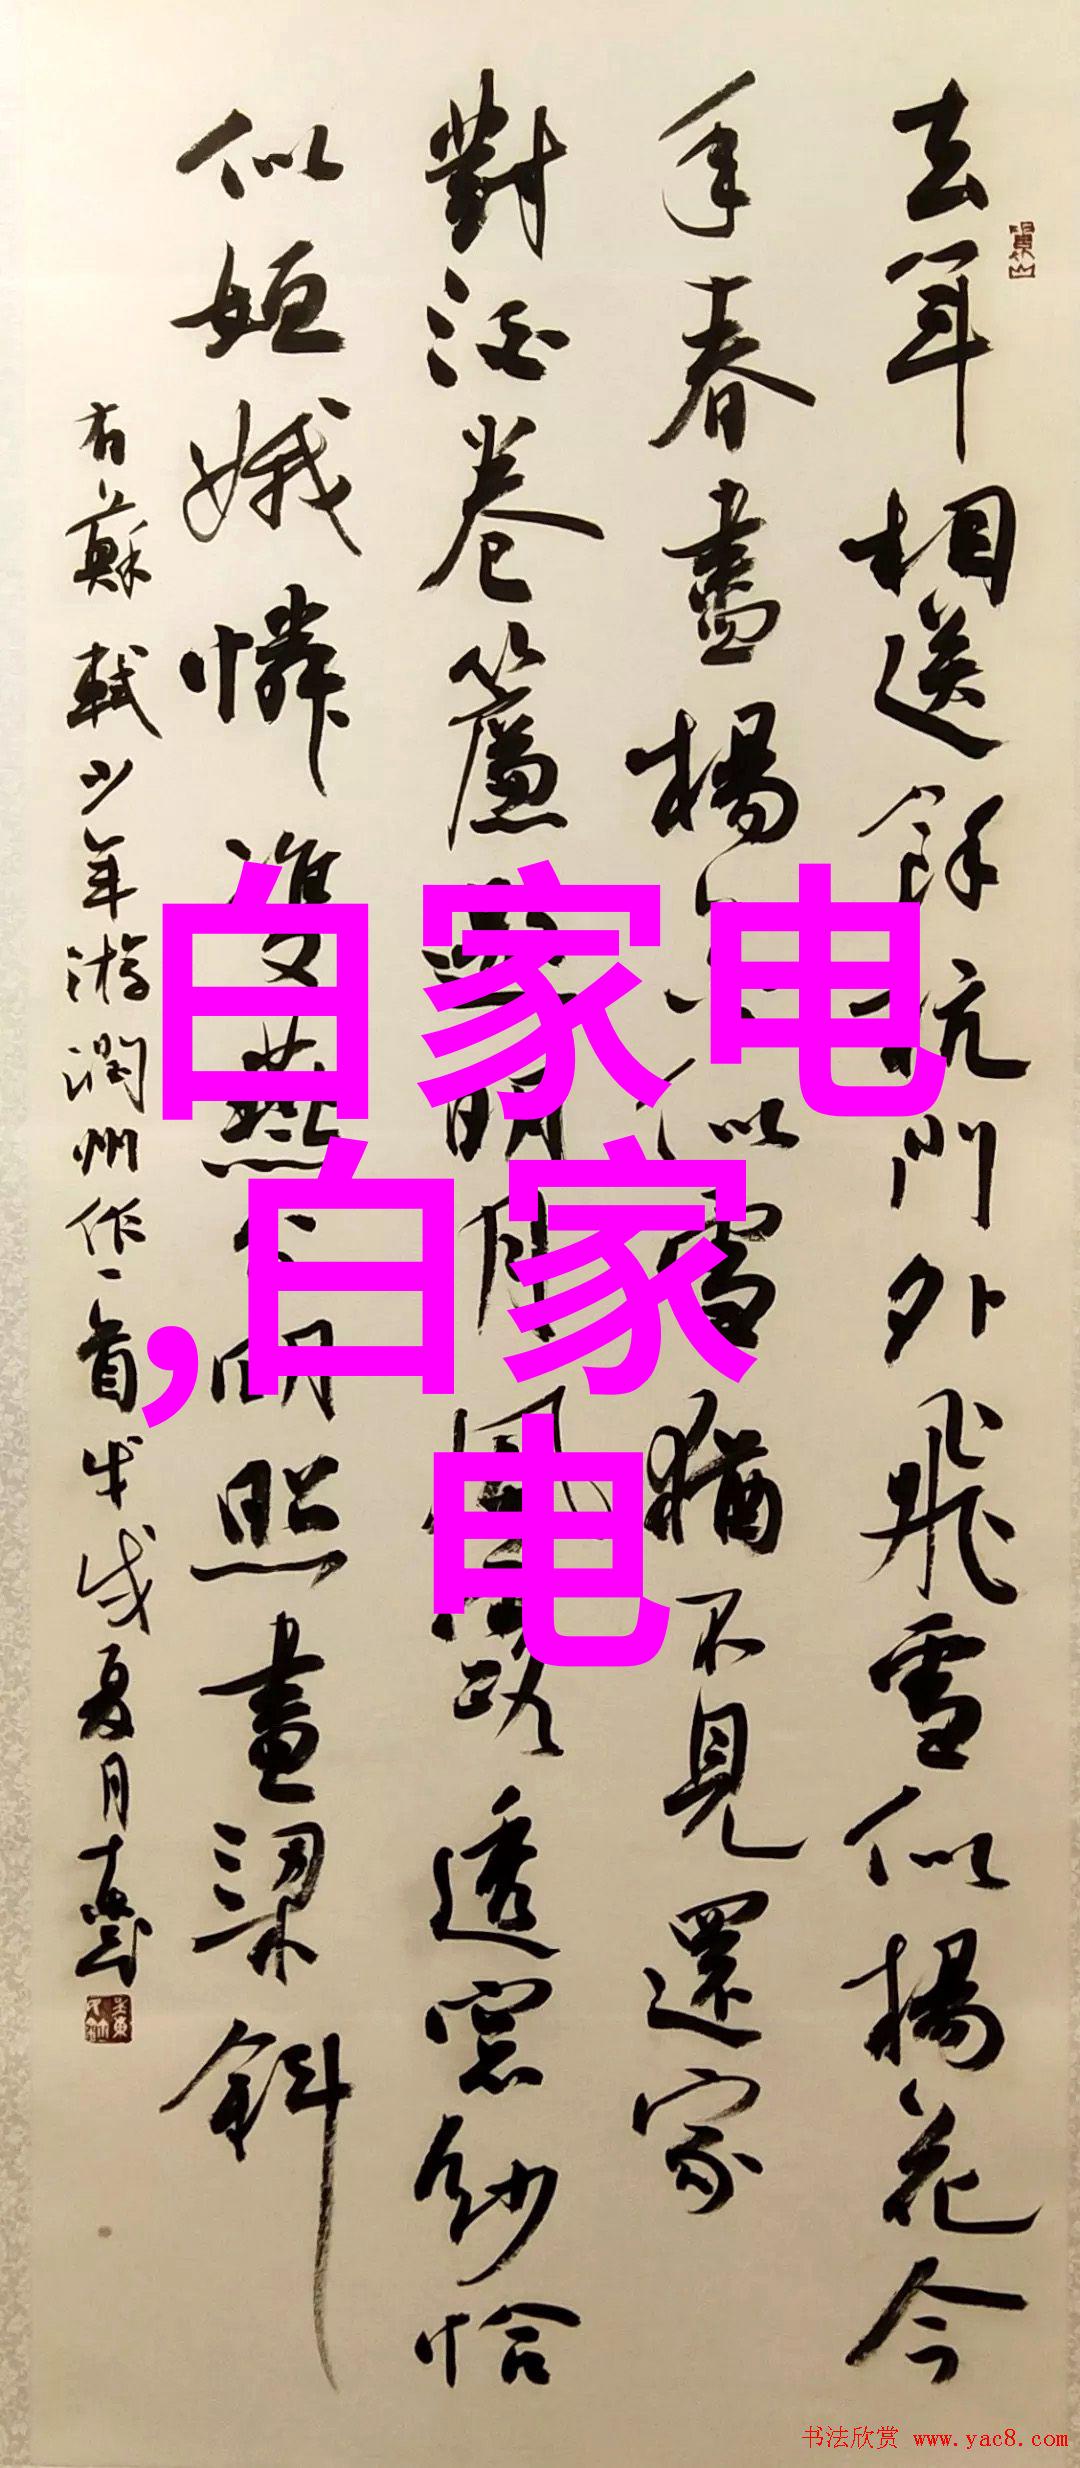 去年相送餘杭門外飛雪似楊花今
年春盡楊花似雪猶不見還家
對酒卷簾邀明月風露透窗紗恰
似姮娥憐雙燕分明照畫梁斜
右蘇軾少年游潤州作一首戊戌夏月
白家电
,白家
电
书法欣赏 www.yac8.com